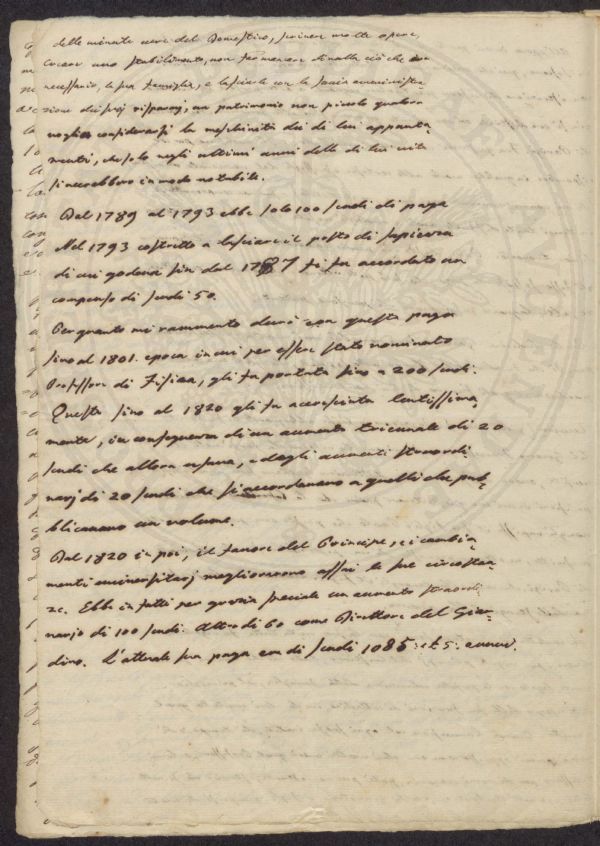 delle minute cure del Domestico, scrivere molte opere,
creare uno stabilimento, non far mancare di nulla ciò che era
necessario, la sua famiglia, e lasciarle con la savia amministra-
zione dei suoi risparmj, un patrimonio non piccolo qualora
voglia considerarsi la meschinità dei di lui appunta-
menti, che solo negli ultimi anni della di lui vita
si accrebbero in modo notabile.
Dal 1789 al 1793 ebbe solo 100 scudi di paga
Nel 1793 costretto a lasciare il posto di sapienza
di cui godeva sin dal 1787 gli fu accordato un
compenso di scudi 50.
Per quanto mi rammento durò con questa paga
sino al 1801. epoca in cui per essere stato nominato
Professore di Fisica, gli fu portata sino a 200 scudi.
Questa sino al 1820 gli fu accresciuta lentissima-
mente, in conseguenza di un aumento triennale di 20
scudi che allora usava, e degli aumenti straordi-
narj di 20 scudi che si accordavano a quelli che pub-
blicavano un volume.
Dal 1820 in poi, il favore del Principe, e i cambia-
menti universitarj migliorarono assai le sue circostan-
ze. Ebbe in fatti per grazia speciale un aumento straordi-
nario di 100 scudi. Altro di 60 come Direttore del Giar-
dino. L'attuale sua paga era di scudi 1085